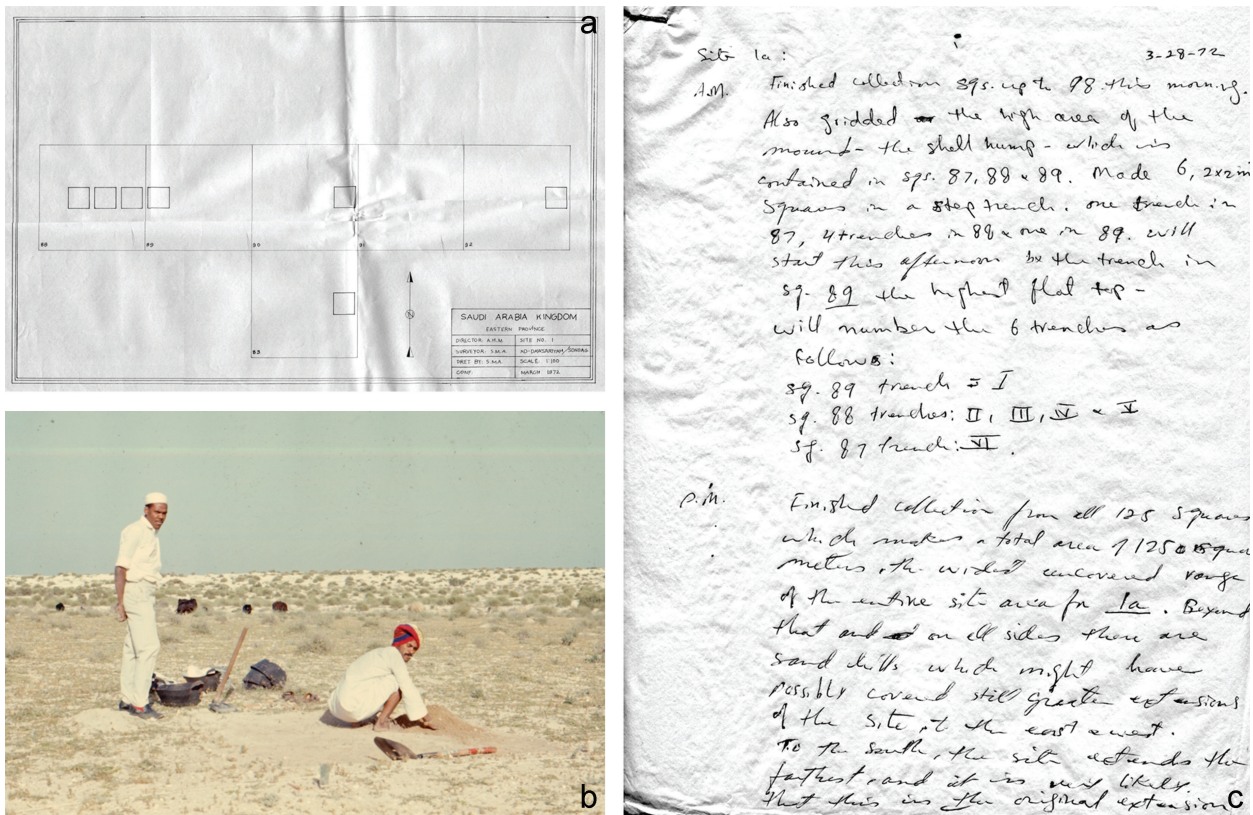 a
88
89
90
91
92
83
N
SAUDI ARABIA KINGDOM
EASTERN PROVINCE
DIRECTOR: A.H.M. SITE NO. 1
SURVEYOR: S.M.A. AD-DAWSARIYAH/
DRFT BY: S.M.A. SCALE 1:100
CONT. MARCH 1972
b
Site 1a: 3-28-72
A.M. Finished collection sqs. up to 98 this morning.
Also gridded the high area of the
mound - the shell hump - which is
contained in sqs. 87, 88 & 89. Made 6, 2x2m
squares in a step trench. one trench in
87, 4 trenches in 88 & one in 89. will
start this afternoon by the trench in
sq. 89 the highest flat top -
will number the 6 trenches as
follows:
sq. 89 trench = I
sq. 88 trenches: II, III, IV & V
sq. 87 trench: VI.
P.M. Finished collection from all 125 squares
which makes a total area of squa
meters, the widest uncovered range
of the entire site area for 1a. Beyond
that and on all sides there are
sand hills which might have
possibly covered still greater extensions
of the site, to the east & west.
To the south, the site extends the
farthest, and it is very likely
that this is the original extension
c